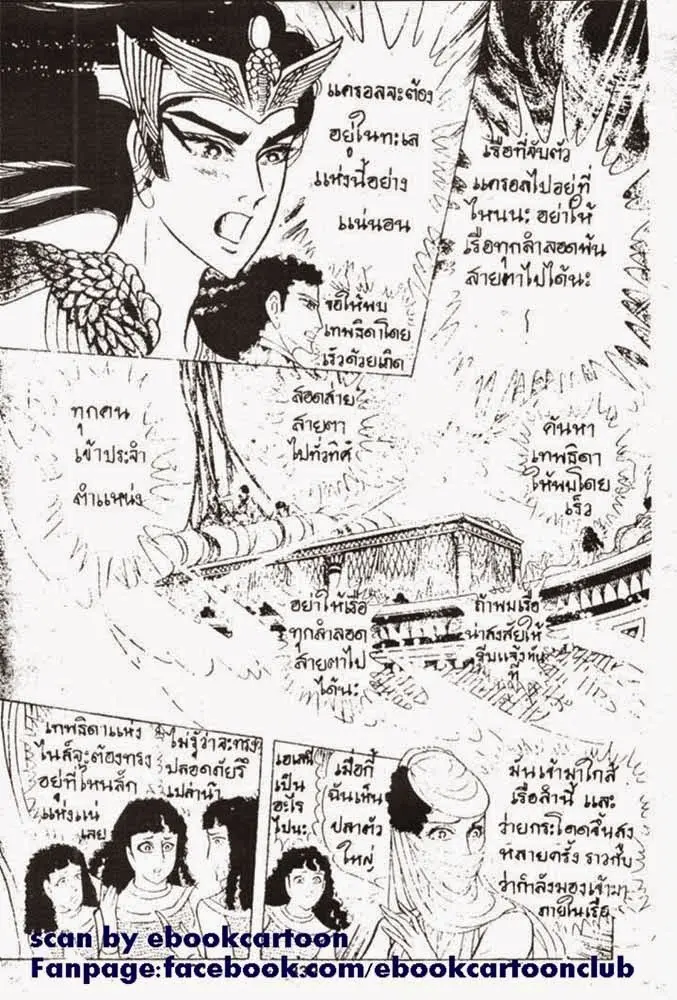 แครอลจะต้อง
อยู่ในทะเล
แห่งนี้อย่าง
แน่นอน
ขอให้พบ
เทพธิดาโดย
เร็วด้วยเถิด
เรือที่จับตัว
แครอลไปอยู่ที่
ไหนนะ อย่าให้
เรือทุกลำลอดพ้น
สายตาไปได้นะ
ทุกคน
เข้าประจำ
ตำแหน่ง
สอดส่าย
สายตา
ไปทั่วทิศ
ค้นหา
เทพธิดา
ให้พบโดย
เร็ว
อย่าให้เรือ
ทุกลำลอด
สายตาไป
ได้นะ
ถ้าพบเรือ
น่าสงสัยให้
รีบแจ้งทัน
ที
เทพธิดาแห่ง
ไนล์จะต้องทรง
อยู่ที่ไหนสัก
แห่งแน่
เลย
ไม่รู้ว่าจะทรง
ปลอดภัยรึ
เปล่าน้า
เอเลนี
เป็น
อะไร
ไปนะ
เมื่อกี้
ฉันเห็น
ปลาตัว
ใหญ่
มันเข้ามาใกล้
เรือลำนี้ และ
ว่ายกระโดดขึ้นสูง
หลายครั้ง ราวกับ
ว่ากำลังมองเข้ามา
ภายในเรือ
scan by ebookcartoon
Fanpage:facebook.com/ebookcartoonclub